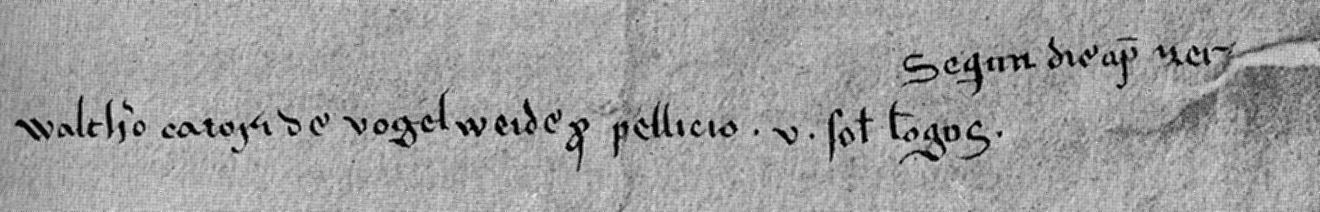 Sequn die ap̄ zei
walth̓o cantori de vogelweide ꝓ pellicio . v . sol̄ l̄ogos .